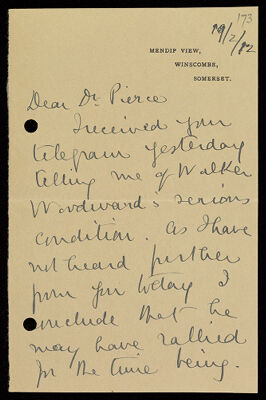 173
19/2/12
MENDIP VIEW,
WINSCOMBE,
SOMERSET.
Dear Dr. Pierce
I received your
telegram yesterday
telling me of Walker
Woodward's serious
condition. As I have
not heard further
from you today I
conclude that he
may have rallied
for the time being.